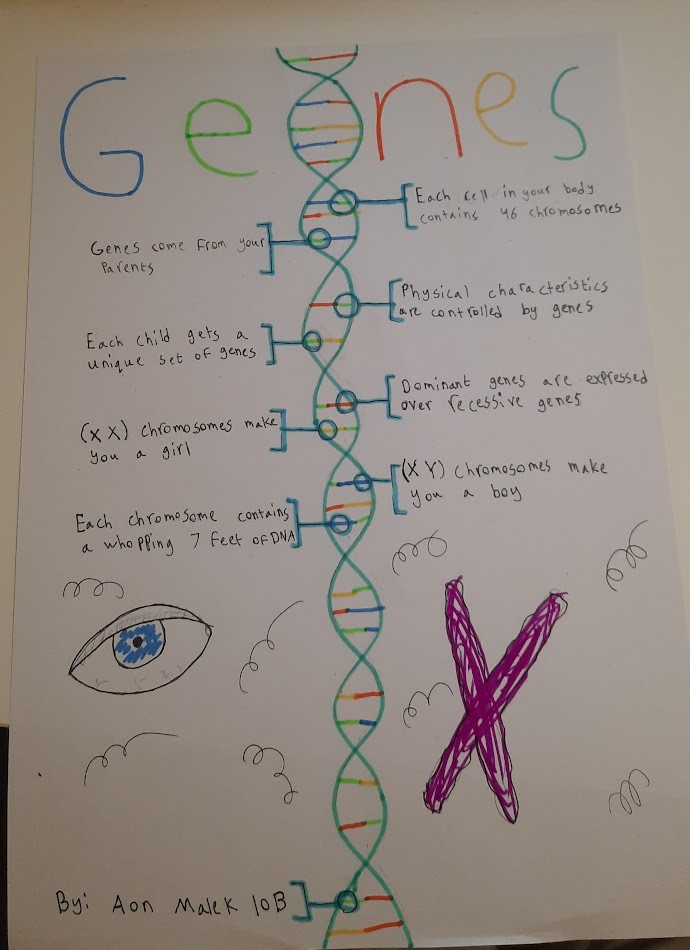 Genes
Each cell in your body
contains 46 chromosomes
Genes come from your
Parents
Physical characteristics
are controlled by genes
Each child gets a
unique set of genes
Dominant genes are expressed
over recessive genes
(X X) chromosomes make
you a girl
(X Y) chromosomes make
you a boy
Each chromosome contains
a whopping 7 feet of DNA
By: Aon Malek 10B